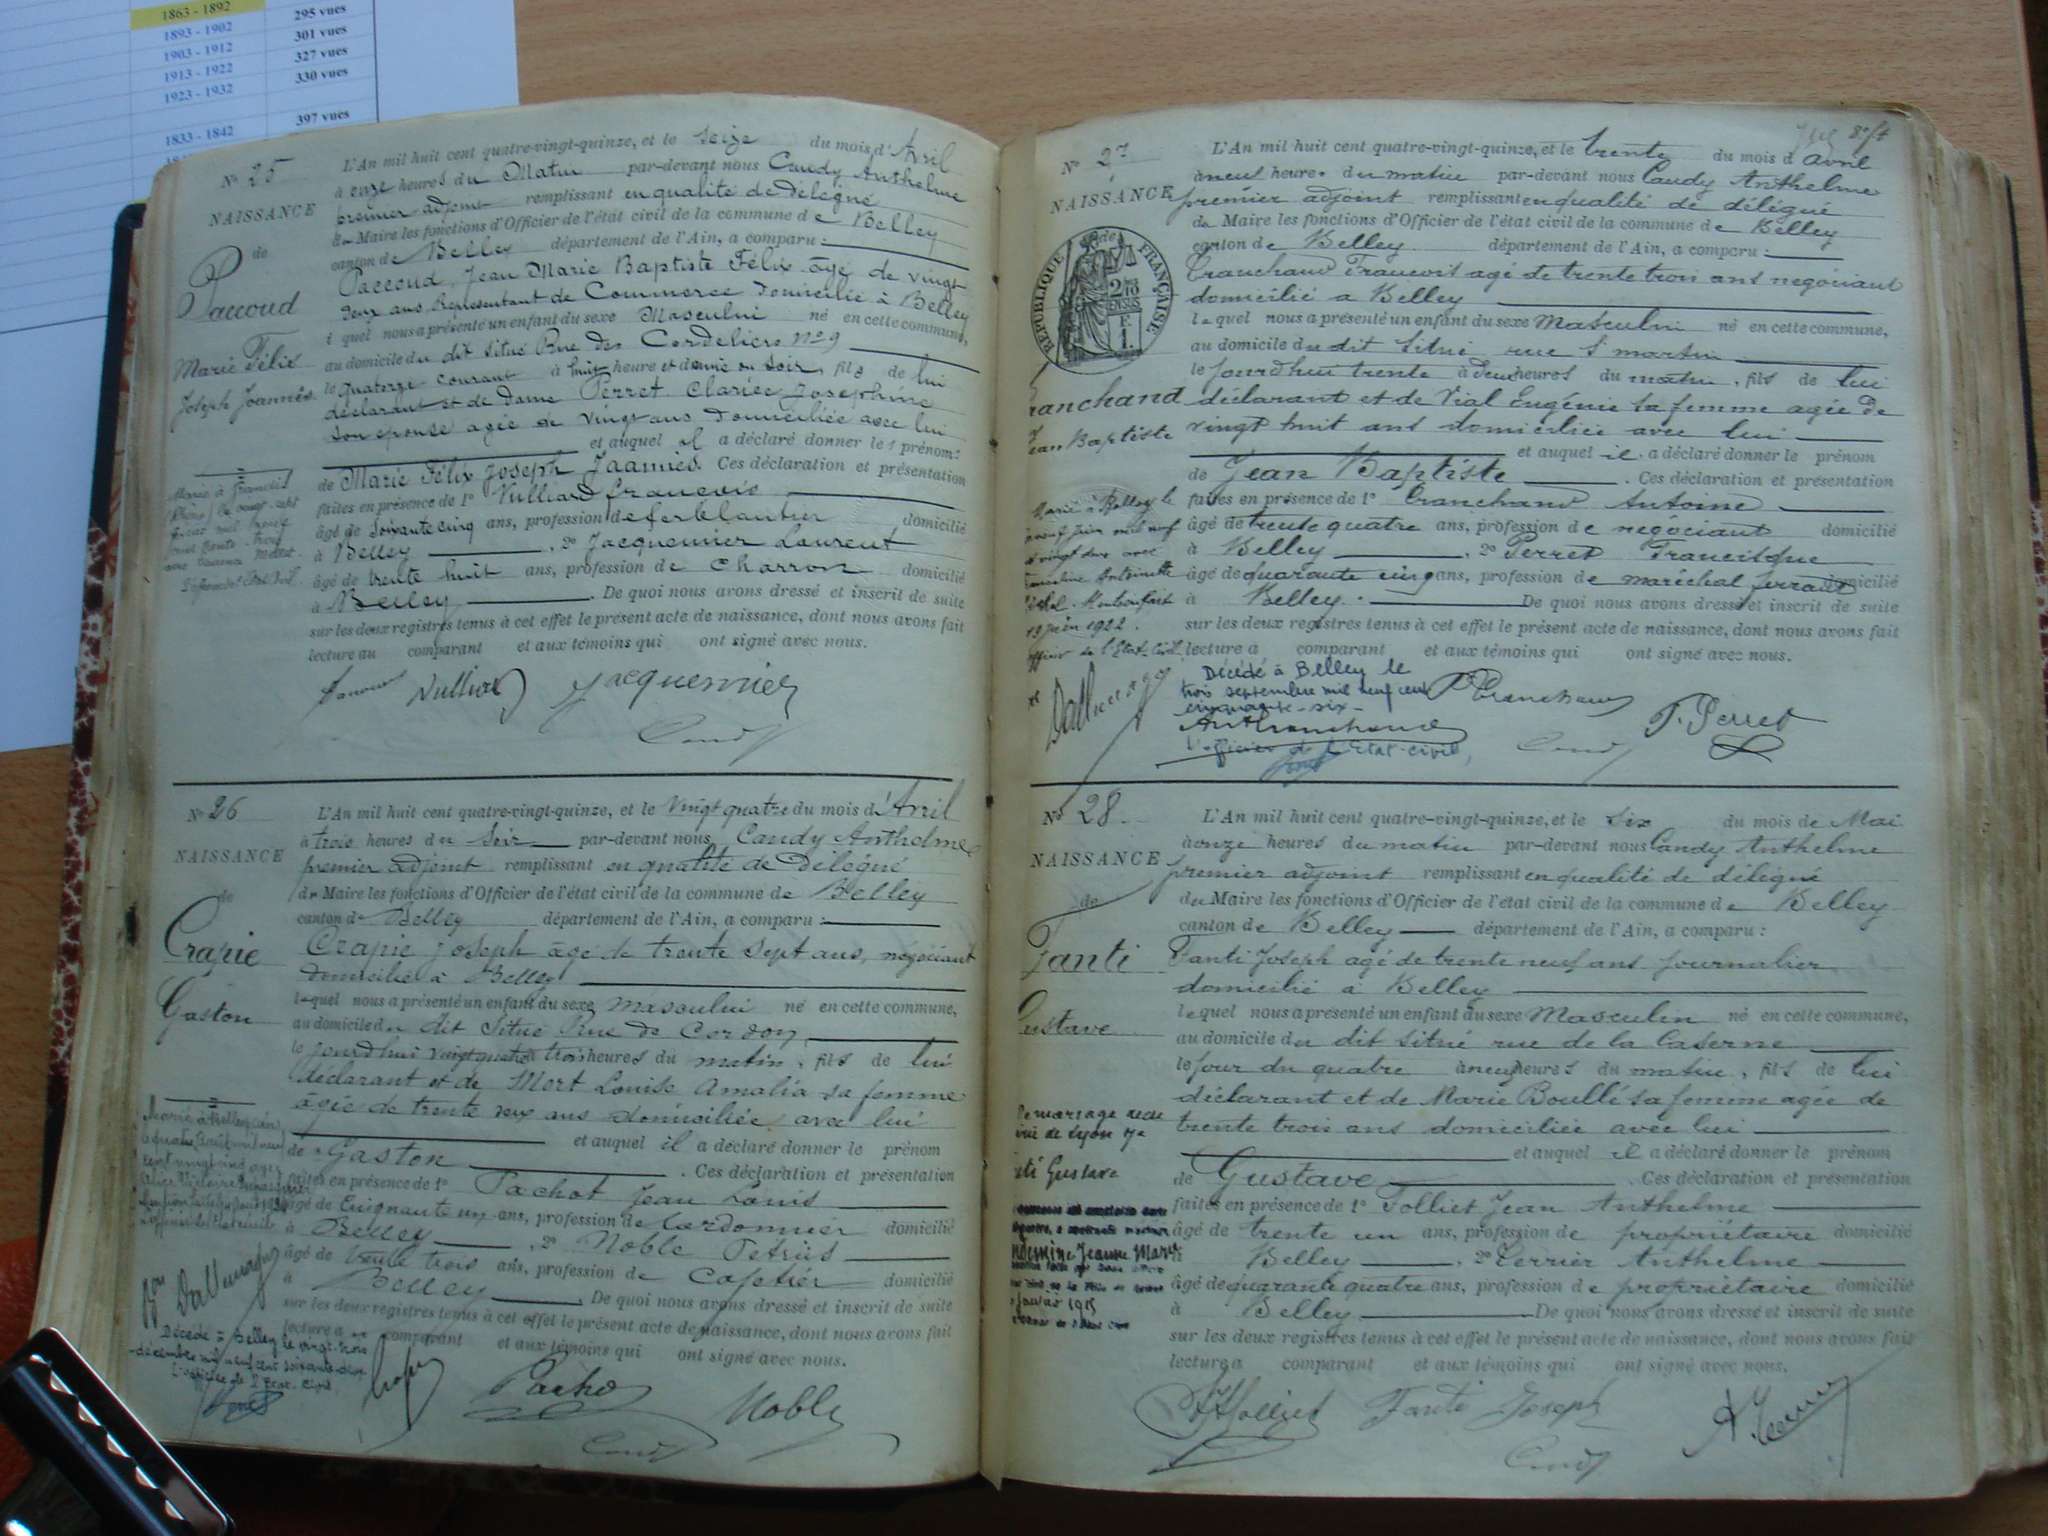 1863 - 1892 295 vues
1893 - 1902 301 vues
1903 - 1912 327 vues
1913 - 1922 330 vues
1923 - 1932
397 vues
1833 - 1842
N° 25
NAISSANCE
de
Paccoud
Marie Félix
Joseph Joannès
L'An mil huit cent quatre-vingt-quinze, et le seize du mois d'Avril
à onze heures du Matin par-devant nous Caudy Anthelme
premier adjoint remplissant en qualité de Délégué
du Maire les fonctions d'Officier de l'état civil de la commune de Belley
canton de Belley département de l'Ain, a comparu :
Paccoud, Jean Marie Baptiste Félix âgé de vingt
deux ans, Représentant de Commerce domicilié à Belley
lequel nous a présenté un enfant du sexe Masculin né en cette commune,
au domicile du dit situé Rue des Cordeliers n° 9
le quatorze courant à huit heure et demie du soir, fils de lui
déclarant et de Dame Perret Clarice Josephine
son épouse agée de vingt ans domiciliée avec lui
et auquel il a déclaré donner les prénoms
de Marie Félix Joseph Joannès. Ces déclaration et présentation
faites en présence de 1° Vulliard françois
âgé de soixante cinq ans, profession de ferblantier domicilié
à Belley , 2° Jacquemier Laurent
âgé de trente huit ans, profession de Charron domicilié
à Belley . De quoi nous avons dressé et inscrit de suite
sur les deux registres tenus à cet effet le présent acte de naissance, dont nous avons fait
lecture au comparant et aux témoins qui ont signé avec nous.
Vulliard Jacquemier
Caudy
N° 26
NAISSANCE
de
Crapie
Gaston
L'An mil huit cent quatre-vingt-quinze, et le vingt quatre du mois d'Avril
à trois heures du Soir par-devant nous Caudy Anthelme
premier adjoint remplissant en qualité de Délégué
du Maire les fonctions d'Officier de l'état civil de la commune de Belley
canton de Belley département de l'Ain, a comparu :
Crapie Joseph âgé de trente sept ans, négociant
domicilié à Belley
lequel nous a présenté un enfant du sexe masculin né en cette commune,
au domicile du dit Situé Rue de Cordon
le jourd'hui vingt quatre à trois heures du matin, fils de lui
déclarant et de Mort Louise Amalia sa femme
âgée de trente deux ans domiciliée avec lui
et auquel il a déclaré donner le prénom
de Gaston . Ces déclaration et présentation
faites en présence de 1° Pachot Jean Louis
âgé de Cinquante un ans, profession de Cordonnier domicilié
à Belley , 2° Noble Petrus
âgé de trente trois ans, profession de Cafetier domicilié
à Belley . De quoi nous avons dressé et inscrit de suite
sur les deux registres tenus à cet effet le présent acte de naissance, dont nous avons fait
lecture au comparant et aux témoins qui ont signé avec nous.
Décédé à Belley le vingt-trois
décembre mil neuf cent soixante-deux
L'officier de l'Etat-Civil
Pachot Noble
Caudy
N° 27
NAISSANCE
RÉPUBLIQUE FRANÇAISE
Tranchand
Jean Baptiste
L'An mil huit cent quatre-vingt-quinze, et le trente du mois d avril
à neuf heures du matin par-devant nous Caudy Anthelme
premier adjoint remplissant en qualité de délégué
du Maire les fonctions d'Officier de l'état civil de la commune de Belley
canton de Belley département de l'Ain, a comparu :
Tranchand François agé de trente trois ans négociant
domicilié a Belley
lequel nous a présenté un enfant du sexe Masculin né en cette commune,
au domicile du dit situé rue St martin
le jourd'hui trente à deux heures du matin, fils de lui
déclarant et de Vial Eugénie sa femme agée de
vingt huit ans domiciliée avec lui
et auquel il a déclaré donner le prénom
de Jean Baptiste . Ces déclaration et présentation
faites en présence de 1° Tranchand Antoine
âgé de trente quatre ans, profession de negociant domicilié
à Belley , 2° Perret Francisque
âgé de quarante cinq ans, profession de maréchal ferrant domicilié
à Belley . De quoi nous avons dressé et inscrit de suite
sur les deux registres tenus à cet effet le présent acte de naissance, dont nous avons fait
lecture à comparant et aux témoins qui ont signé avec nous.
Marié à Belley le
13 juin 1922.
officier de l'Etat-Civil
Décédé à Belley le
trois septembre mil neuf cent
cinquante-six
L'officier de l'Etat-civil,
Tranchand F. Perret
Caudy
N° 28
NAISSANCE
de
Fanti
Gustave
L'An mil huit cent quatre-vingt-quinze, et le six du mois de Mai
à onze heures du matin par-devant nous Caudy Anthelme
premier adjoint remplissant en qualité de délégué
du Maire les fonctions d'Officier de l'état civil de la commune de Belley
canton de Belley département de l'Ain, a comparu :
Fanti Joseph agé de trente neuf ans journalier
domicilié à Belley
lequel nous a présenté un enfant du sexe Masculin né en cette commune,
au domicile du dit situé rue de la Caserne
le jour du quatre à neuf heures du matin, fils de lui
déclarant et de Marie Boullé sa femme agée de
trente trois ans domiciliée avec lui
et auquel il a déclaré donner le prénom
de Gustave . Ces déclaration et présentation
faites en présence de 1° Tolliet Jean Anthelme
âgé de trente un ans, profession de propriétaire domicilié
à Belley , 2° Terrier Anthelme
âgé de quarante quatre ans, profession de propriétaire domicilié
à Belley De quoi nous avons dressé et inscrit de suite
sur les deux registres tenus à cet effet le présent acte de naissance, dont nous avons fait
lecture a comparant et aux témoins qui ont signé avec nous.
Tolliet Fanti Joseph
Caudy